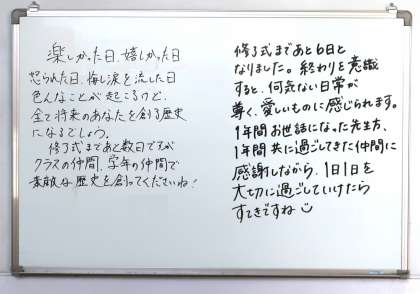 楽しかった日、嬉しかった日
怒られた日、悔し涙を流した日
色んなことが起こるけど、
全て将来のあなたを創る歴史
になるでしょう。
修了式まであと数日ですが
クラスの仲間、学年の仲間で
素敵な歴史を創ってくださいね!
修了式まであと6日と
なりました。終わりを意識
すると、何気ない日常が
尊く、愛しいものに感じられます。
1年間お世話になった先生方、
1年間共に過ごしてきた仲間に
感謝しながら、1日1日を
大切に過ごしていけたら
すてきですね